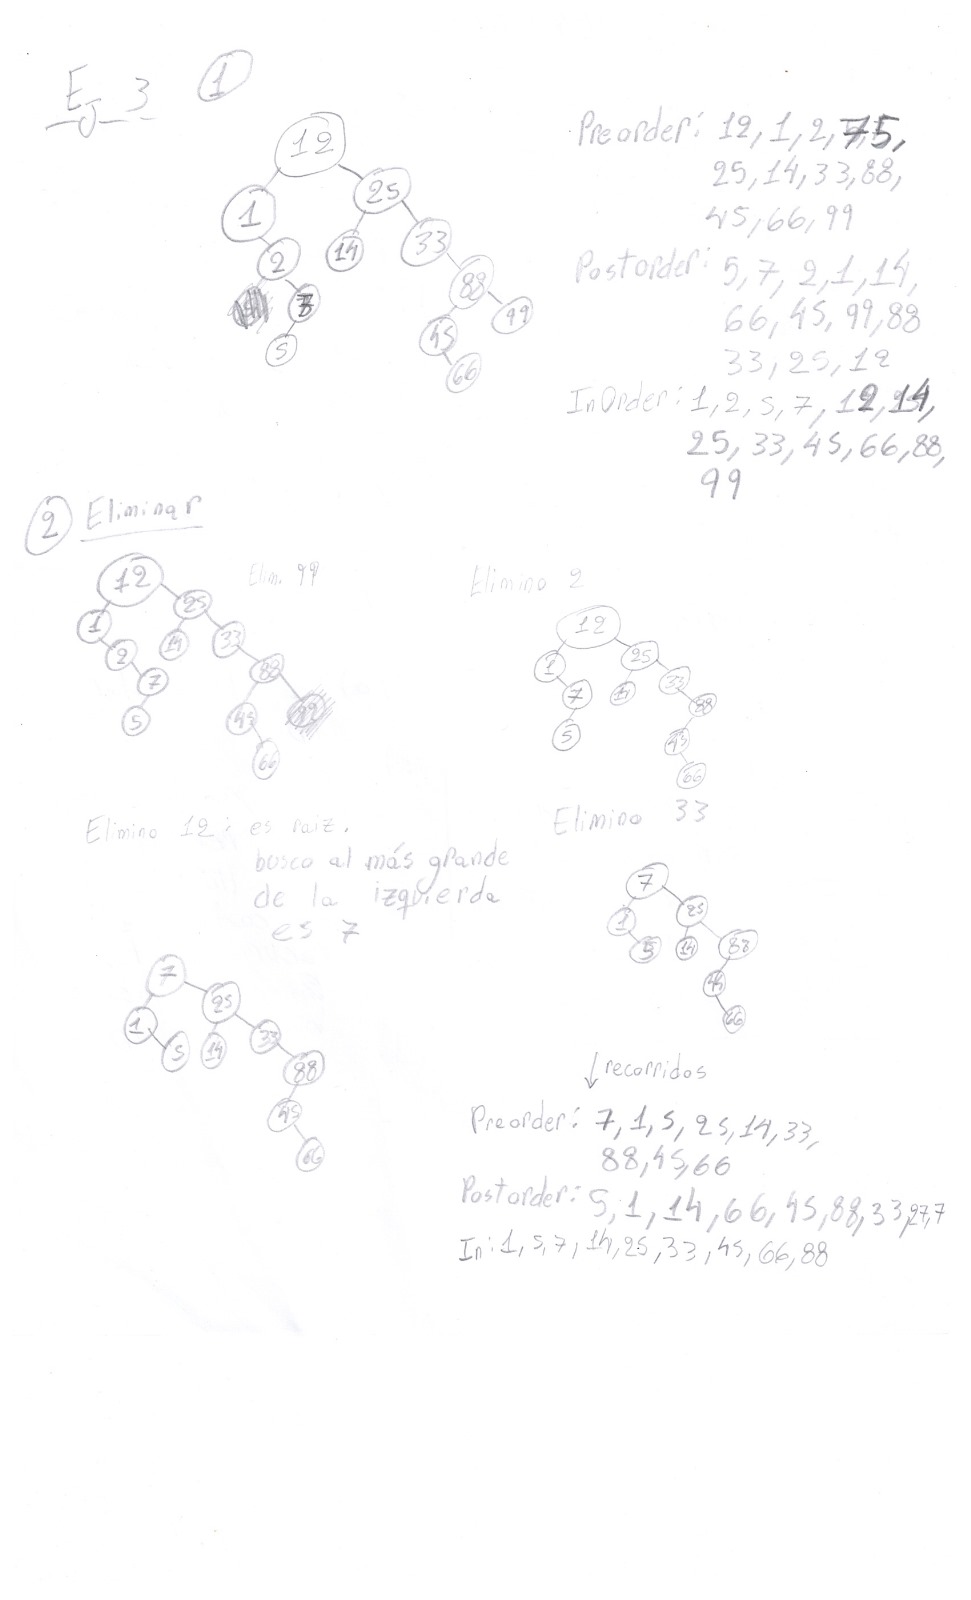 Ej 3 1
12
1 25
2 14 33
7 88
5 45 99
66
Preorder: 12, 1, 2, 7, 5,
25, 14, 33, 88,
45, 66, 99
Postorder: 5, 7, 2, 1, 14,
66, 45, 99, 88
33, 25, 12
InOrder: 1, 2, 5, 7, 12, 14,
25, 33, 45, 66, 88,
99
2 Eliminar
Elim. 99
12
1 25
2 14 33
7 88
5 45 99
66
Elimino 2
12
1 25
7 14 33
5 88
45
66
Elimino 12: es raiz.
busco al más grande
de la izquierda
es 7
7
1 25
5 14 33
88
45
66
Elimino 33
7
1 25
5 14 88
66
↓ recorridos
Preorder: 7, 1, 5, 25, 14, 33,
88, 45, 66
Postorder: 5, 1, 14, 66, 45, 88, 33, 27, 7
In: 1, 5, 7, 14, 25, 33, 45, 66, 88